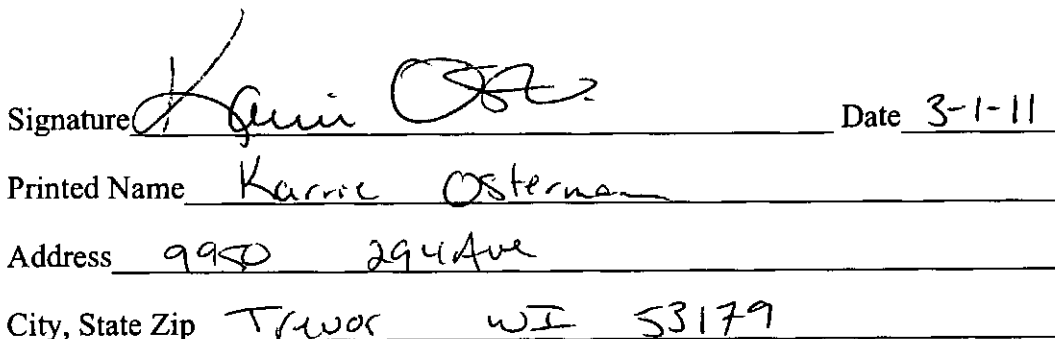 Signature Karrie Oste. Date 3-1-11
Printed Name Karrie Osterman
Address 9950 294 Ave
City, State Zip Trevor WI 53179